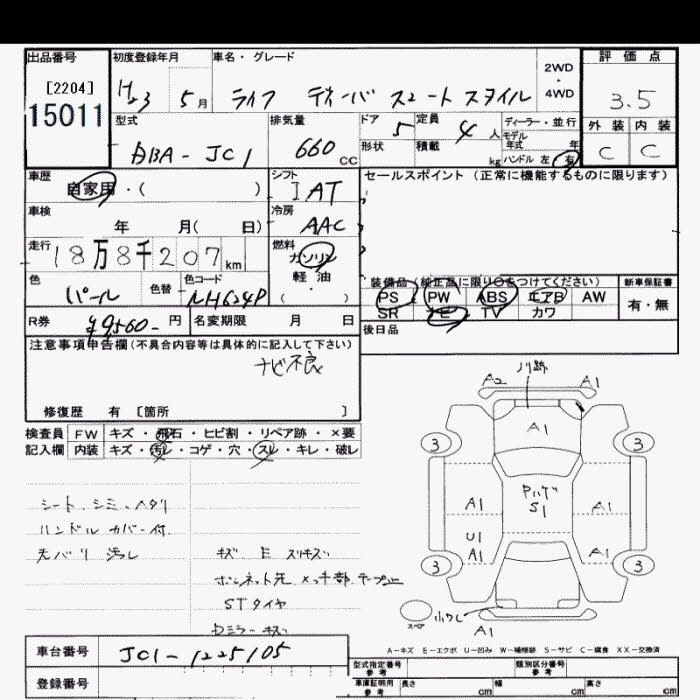 出品番号
[2204]
15011
初度登録年月
H23 5月
車名・グレード
ライフ ディーバ スマートスタイル
2WD
・
4WD
評価点
3.5
外装 内装
C C
型式
DBA-JC1
排気量
660 CC
ドア
5
形状
定員
4 人
積載
kg
ディーラー・並行
モデル
年式 年
ハンドル 左 右
車歴
自家用・( )
シフト
IAT
セールスポイント（正常に機能するものに限ります）
車検
年 月( 日)
冷房
AAC
走行
18万8千207km
燃料
ガソリン
軽・油
( )
色
パール
色替
色コード
NH624P
装備品（純正品に限り○をつけてください）
PS PW ABS エアB AW
SR ナビ TV カワ
新車保証書
有・無
R券
¥9560- 円
名変期限 月 日
後日品
注意事項申告欄(不具合内容等は具体的に記入して下さい)
ナビ不良
修復歴 有 [箇所 ]
検査員 FW キズ・飛石・ヒビ割・リペア跡・×要
記入欄 内装 キズ・汚レ・コゲ・穴・スレ・キレ・破レ
シート、シミ・ヘタリ
ハンドルカバー付
天バリ 汚レ
キズ E スリキズ
STタイヤ
Dミラー キズ
A2
A1
A1
3
3
A1
S1
A1
U1
A1
A1
3
3
スペア
A1
A-キズ E-エクボ U-凹み W-補修跡 S-サビ C-腐食 XX-交換済
車台番号
JC1-1225105
登録番号
型式指定番号
参考
類別区分番号
参考
車庫証明用
参考
長さ cm
幅 cm
高さ cm